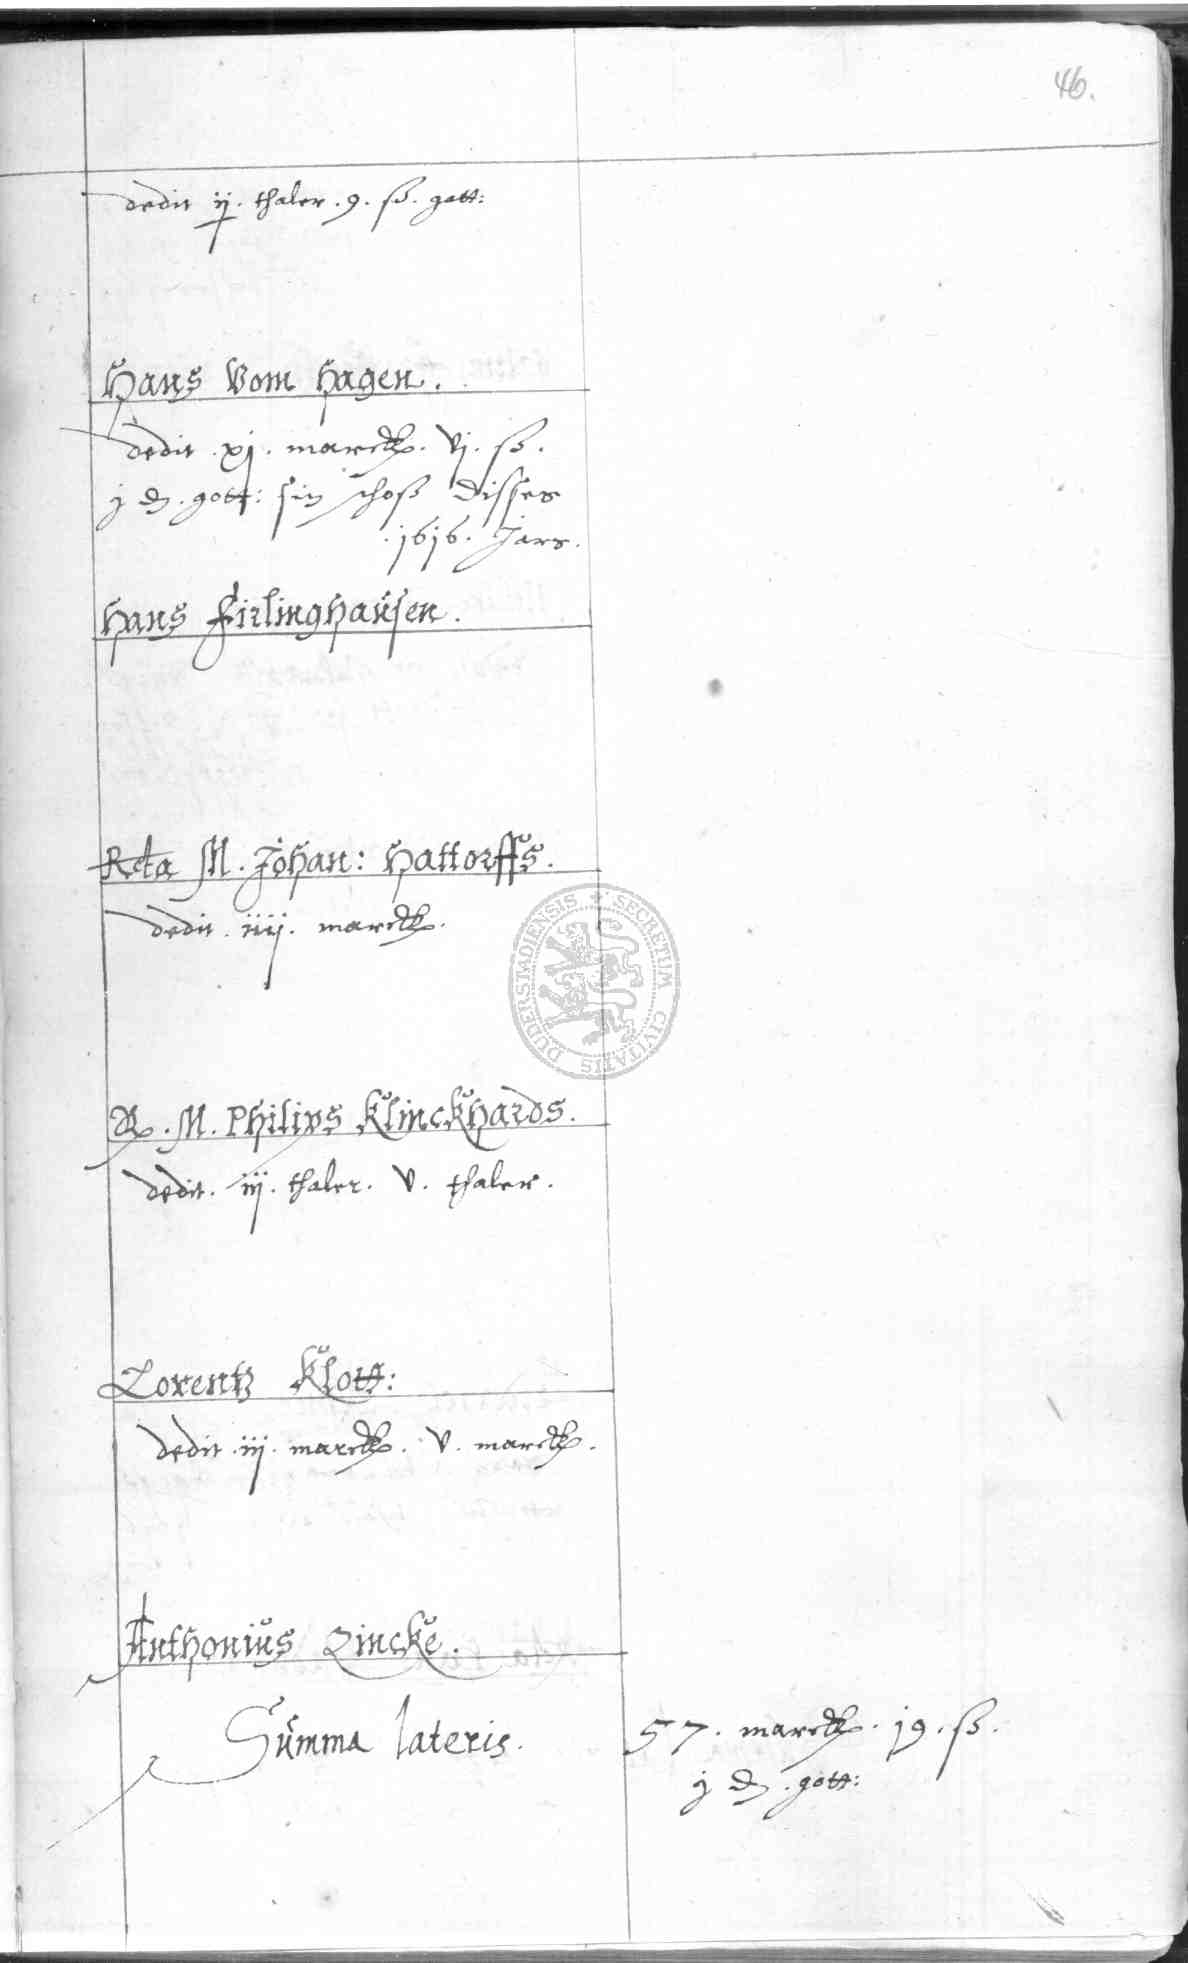 46.
dedit ij. thaler. 9. ß. gott:
Hans Vom Hagen.
dedit xj. marck. vj. ß.
j d. gott: sin schoß disses
1616. Jars.
Hans Firlinghausen.
Rcta M. Johan: Hattorffs.
dedit. iiij. marck.
R. M. Philips Klinckhards.
dedit. iij. thaler. v. thaler.
Lorentz Klott:
dedit. iij. marck. v. marck.
Anthonius Zincke.
Summa lateris. 57. marck. 19. ß.
j d. gott:
SECRETUM CIVITATIS DUDERSTADIENSIS